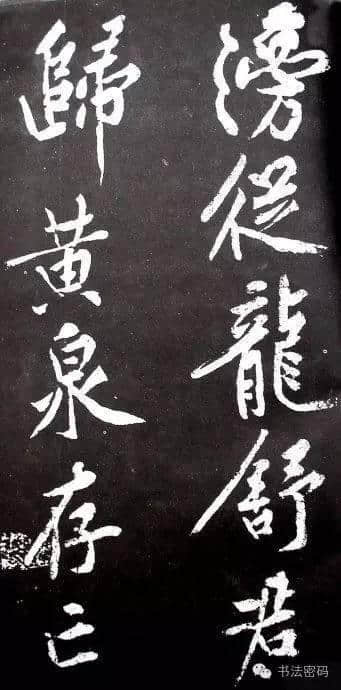 滂從龍舒君
歸黃泉存亡
书法密码